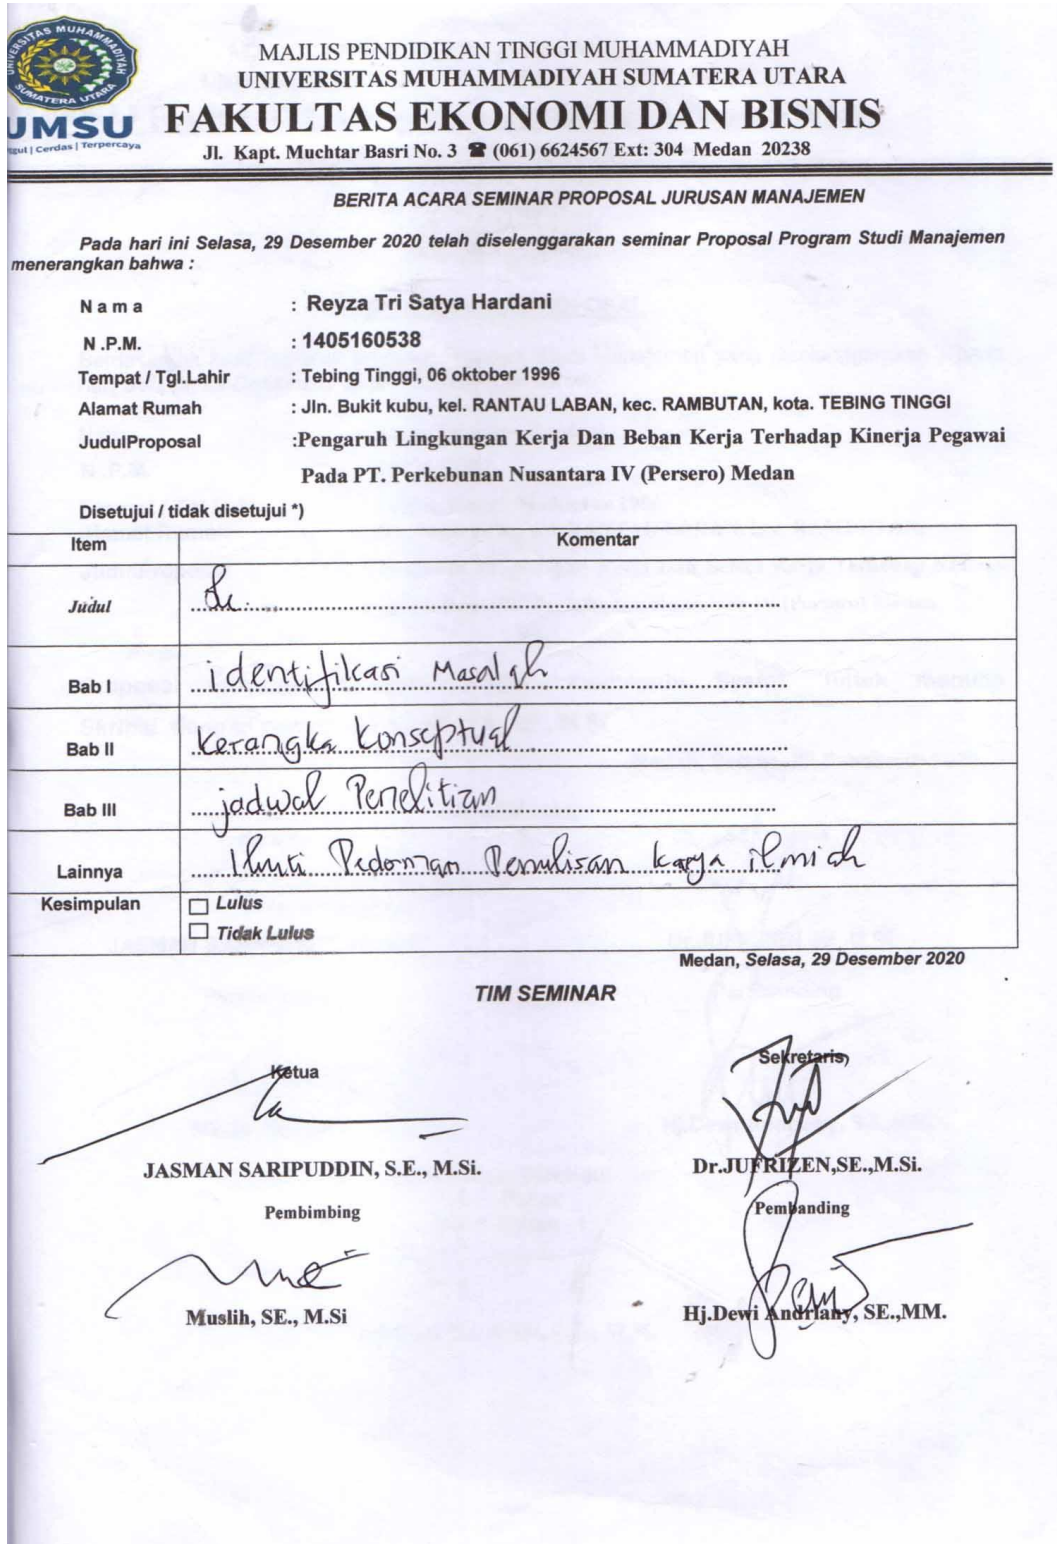 UNIVERSITAS MUHAMMADIYAH
SUMATERA UTARA
UMSU
Cerdas | Terpercaya
MAJLIS PENDIDIKAN TINGGI MUHAMMADIYAH
UNIVERSITAS MUHAMMADIYAH SUMATERA UTARA
FAKULTAS EKONOMI DAN BISNIS
Jl. Kapt. Muchtar Basri No. 3 ☎ (061) 6624567 Ext: 304 Medan 20238
BERITA ACARA SEMINAR PROPOSAL JURUSAN MANAJEMEN
Pada hari ini Selasa, 29 Desember 2020 telah diselenggarakan seminar Proposal Program Studi Manajemen
menerangkan bahwa :
N a m a : Reyza Tri Satya Hardani
N .P.M. : 1405160538
Tempat / Tgl.Lahir : Tebing Tinggi, 06 oktober 1996
Alamat Rumah : Jln. Bukit kubu, kel. RANTAU LABAN, kec. RAMBUTAN, kota. TEBING TINGGI
JudulProposal :Pengaruh Lingkungan Kerja Dan Beban Kerja Terhadap Kinerja Pegawai
Pada PT. Perkebunan Nusantara IV (Persero) Medan
Disetujui / tidak disetujui *)
Item Komentar
Judul
Bab I identifikasi Masalah
Bab II Kerangka Konseptual
Bab III jadwal Penelitian
Lainnya Ikuti Pedoman Penulisan karya ilmiah
Kesimpulan Lulus
Tidak Lulus
Medan, Selasa, 29 Desember 2020
TIM SEMINAR
Ketua Sekretaris
JASMAN SARIPUDDIN, S.E., M.Si. Dr.JUFRIZEN,SE.,M.Si.
Pembimbing Pembanding
Muslih, SE., M.Si Hj.Dewi Andriany, SE.,MM.